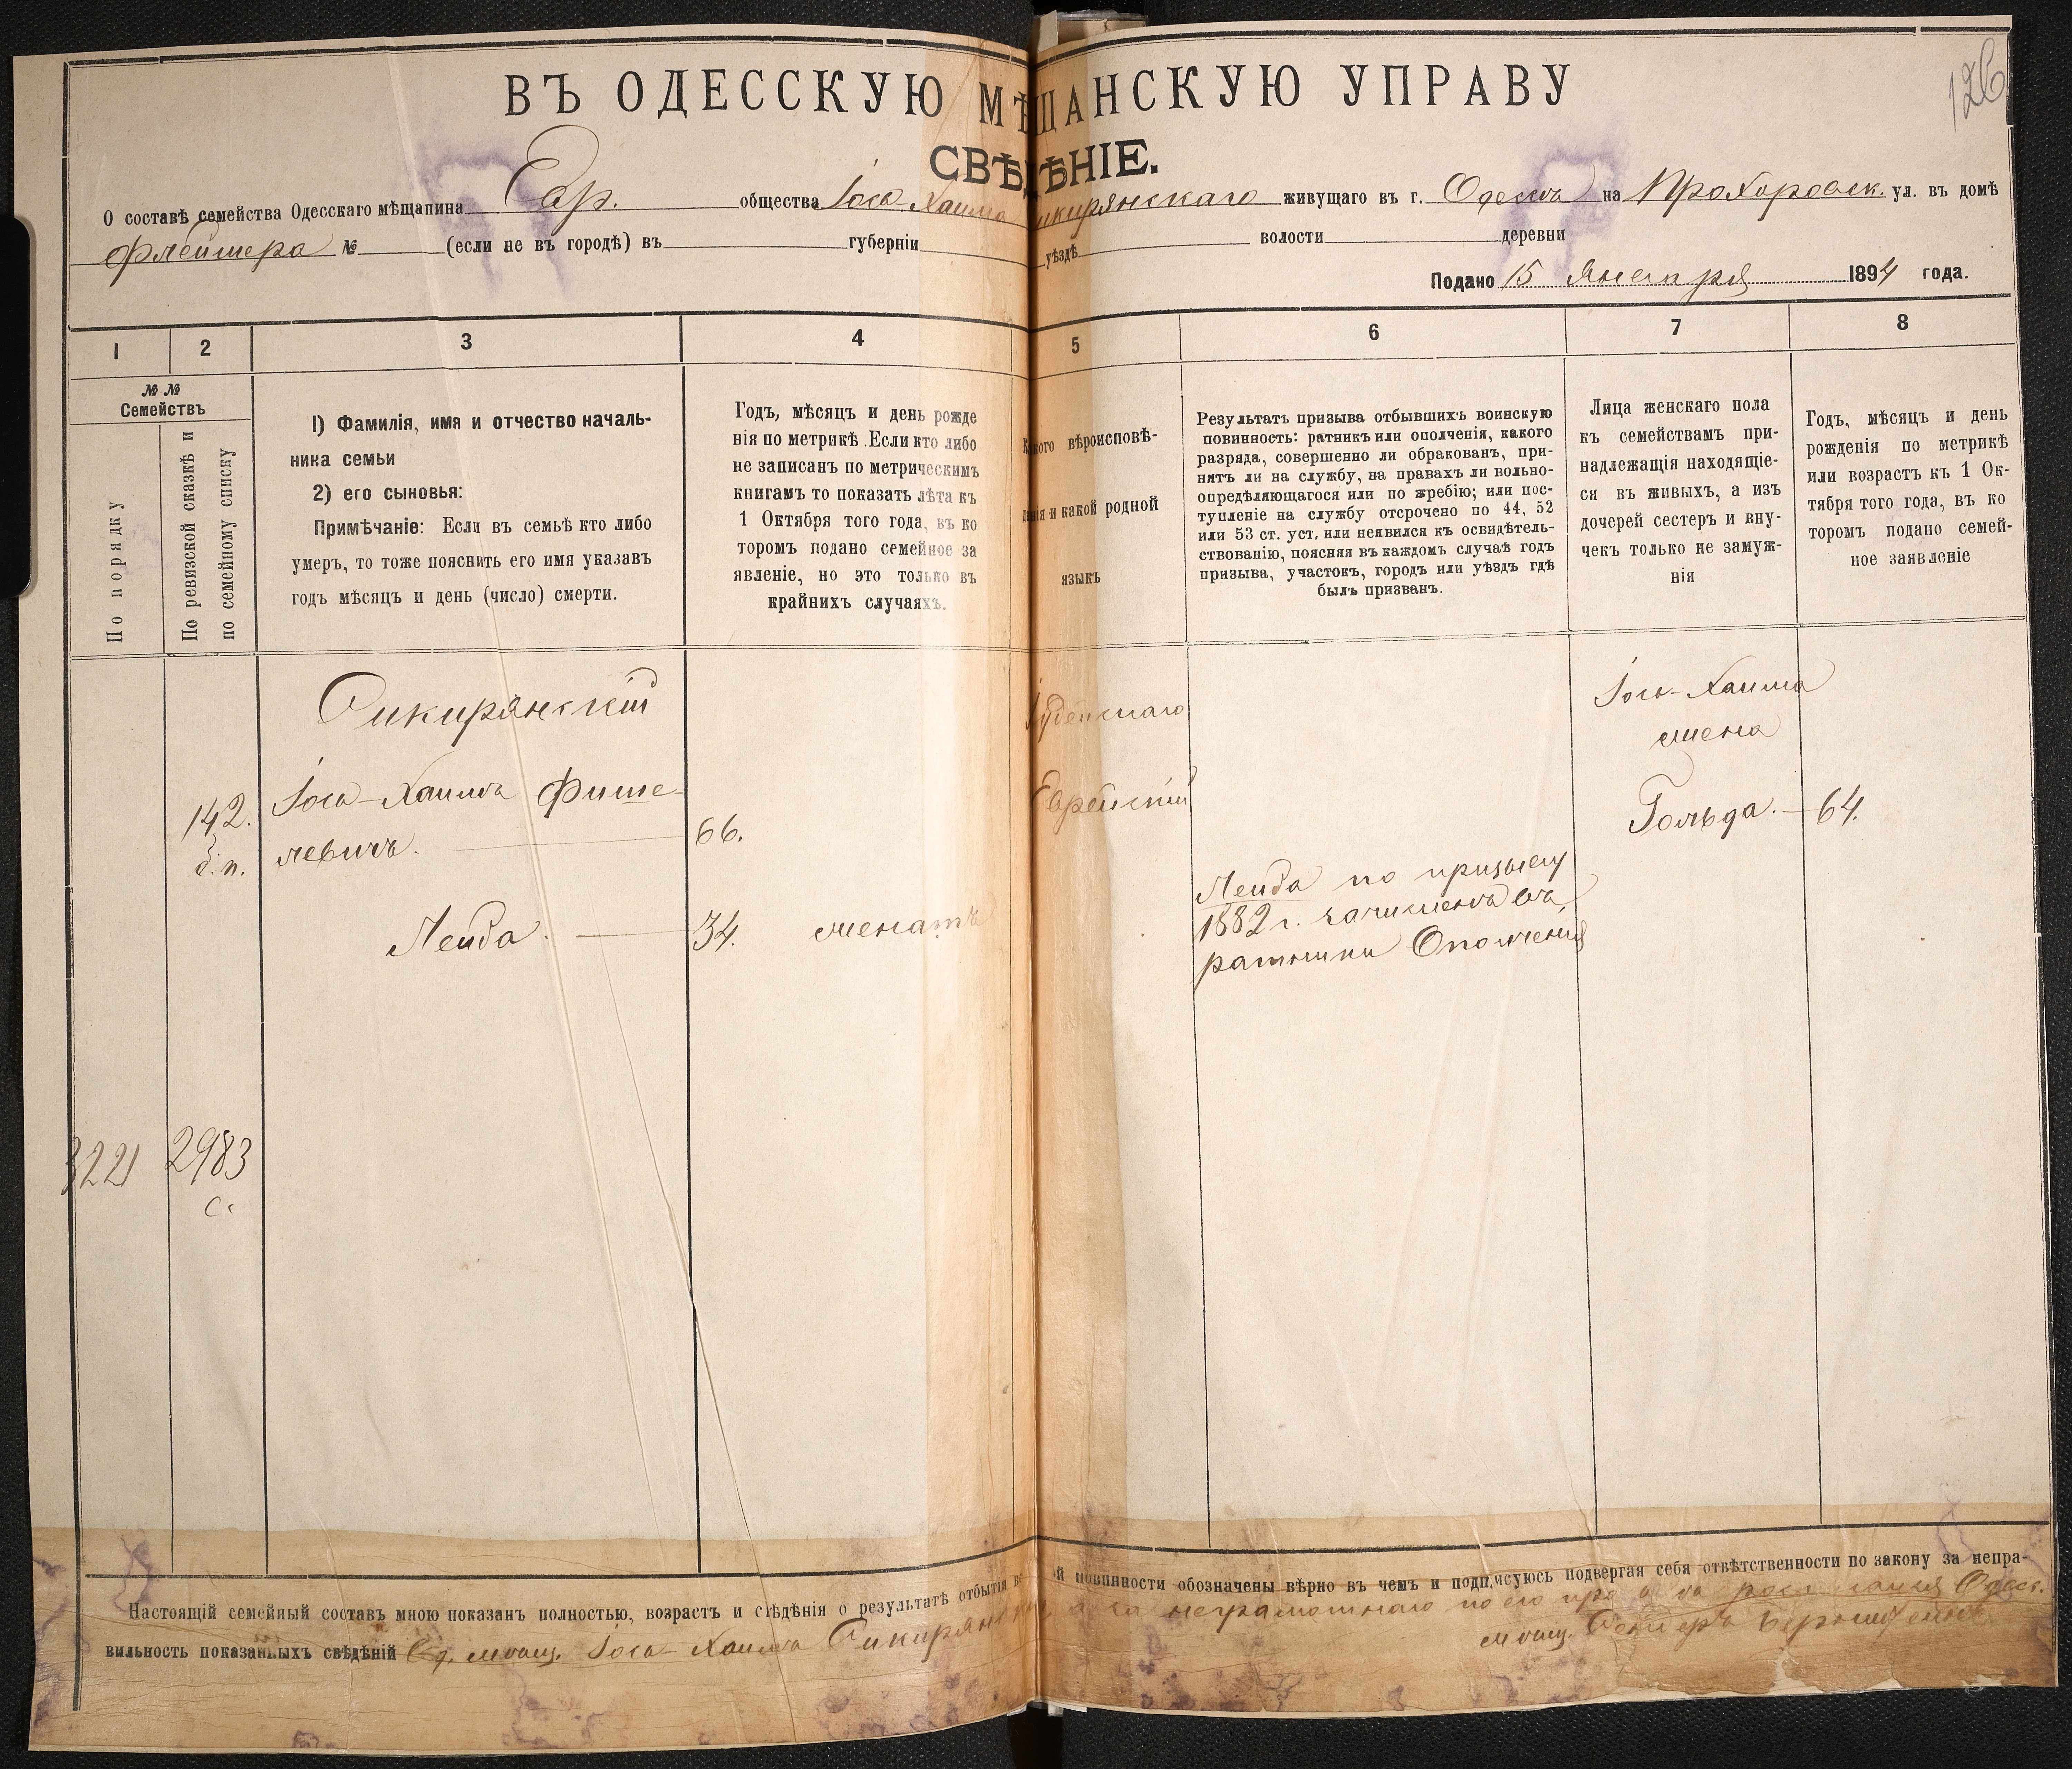 126
ВЪ ОДЕССКУЮ МѢЩАНСКУЮ УПРАВУ
СВѢДѢНІЕ.
О составѣ семейства Одесскаго мѣщанина Евр. общества Іосъ Хаима Сикирянскаго живущаго въ г. Одессѣ на Прохоровск. ул. въ домѣ
Флейшера № (если не въ городѣ) въ губерніи уѣздѣ волости деревни
Подано 15 Января 1894 года.
1 2 3 4 5 6 7 8
№ №
Семействъ
По порядку
По ревизской сказкѣ и
по семейному списку
1) Фамилія, имя и отчество началь-
ника семьи
2) его сыновья:
Примѣчаніе: Если въ семьѣ кто либо
умеръ, то тоже пояснить его имя указавъ
годъ мѣсяцъ и день (число) смерти.
Годъ, мѣсяцъ и день рожде
нія по метрикѣ. Если кто либо
не записанъ по метрическимъ
книгамъ то показать лѣта къ
1 Октября того года, въ ко
торомъ подано семейное за
явленіе, но это только въ
крайнихъ случаяхъ.
Какого вѣроисповѣ-
данія и какой родной
языкъ
Результатъ призыва отбывшихъ воинскую
повинность: ратникъ или ополченія, какого
разряда, совершенно ли обракованъ, при-
нятъ ли на службу, на правахъ ли вольно-
опредѣляющагося или по жребію; или пос-
тупленіе на службу отсрочено по 44, 52
или 53 ст. уст. или неявился къ освидѣтель-
ствованію, поясняя въ каждомъ случаѣ годъ
призыва, участокъ, городъ или уѣздъ гдѣ
былъ призванъ.
Лица женскаго пола
къ семействамъ при-
надлежащія находящіе-
ся въ живыхъ, а изъ
дочерей сестеръ и вну-
чекъ только не замуж-
нія
Годъ, мѣсяцъ и день
рожденія по метрикѣ
или возрастъ къ 1 Ок-
тября того года, въ ко
торомъ подано семей-
ное заявленіе
Сикирянскій
142.
д. п.
Іось-Хаимъ Фише-
левичъ. 66.
Лейба. 34. женатъ
Іудейскаго
Еврейскій
Лейба по призыву
1882 г. зачисленъ въ
ратники Ополченія
Іось-Хаима
жена
Гольда. 64.
3221 2983
с.
Настоящій семейный составъ мною показанъ полностью, возрастъ и свѣдѣнія о результатѣ отбытія воинской повинности обозначены вѣрно въ чемъ и подписуюсь подвергая себя отвѣтственности по закону за непра-
вильность показанныхъ свѣдѣній Од. мѣщ. Іось-Хаимъ Сикирянскій а за неграмотнаго по его просьбѣ росписался Одес.
мѣщ.